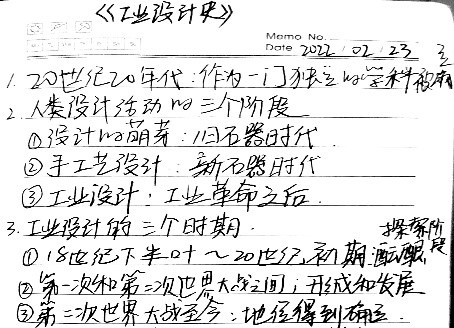 《工业设计史》
Memo No.
Date 2022 / 02 / 23
1. 20世纪20年代:作为一门独立的学科被确立
2. 人类设计活动的三个阶段
①设计的萌芽:旧石器时代
②手工艺设计:新石器时代
③工业设计:工业革命之后
3. 工业设计的三个时期.
①18世纪下半叶~20世纪初期:酝酿探索阶段
②第一次和第二次世界大战之间:形成和发展
③第二次世界大战至今:地位得到确立